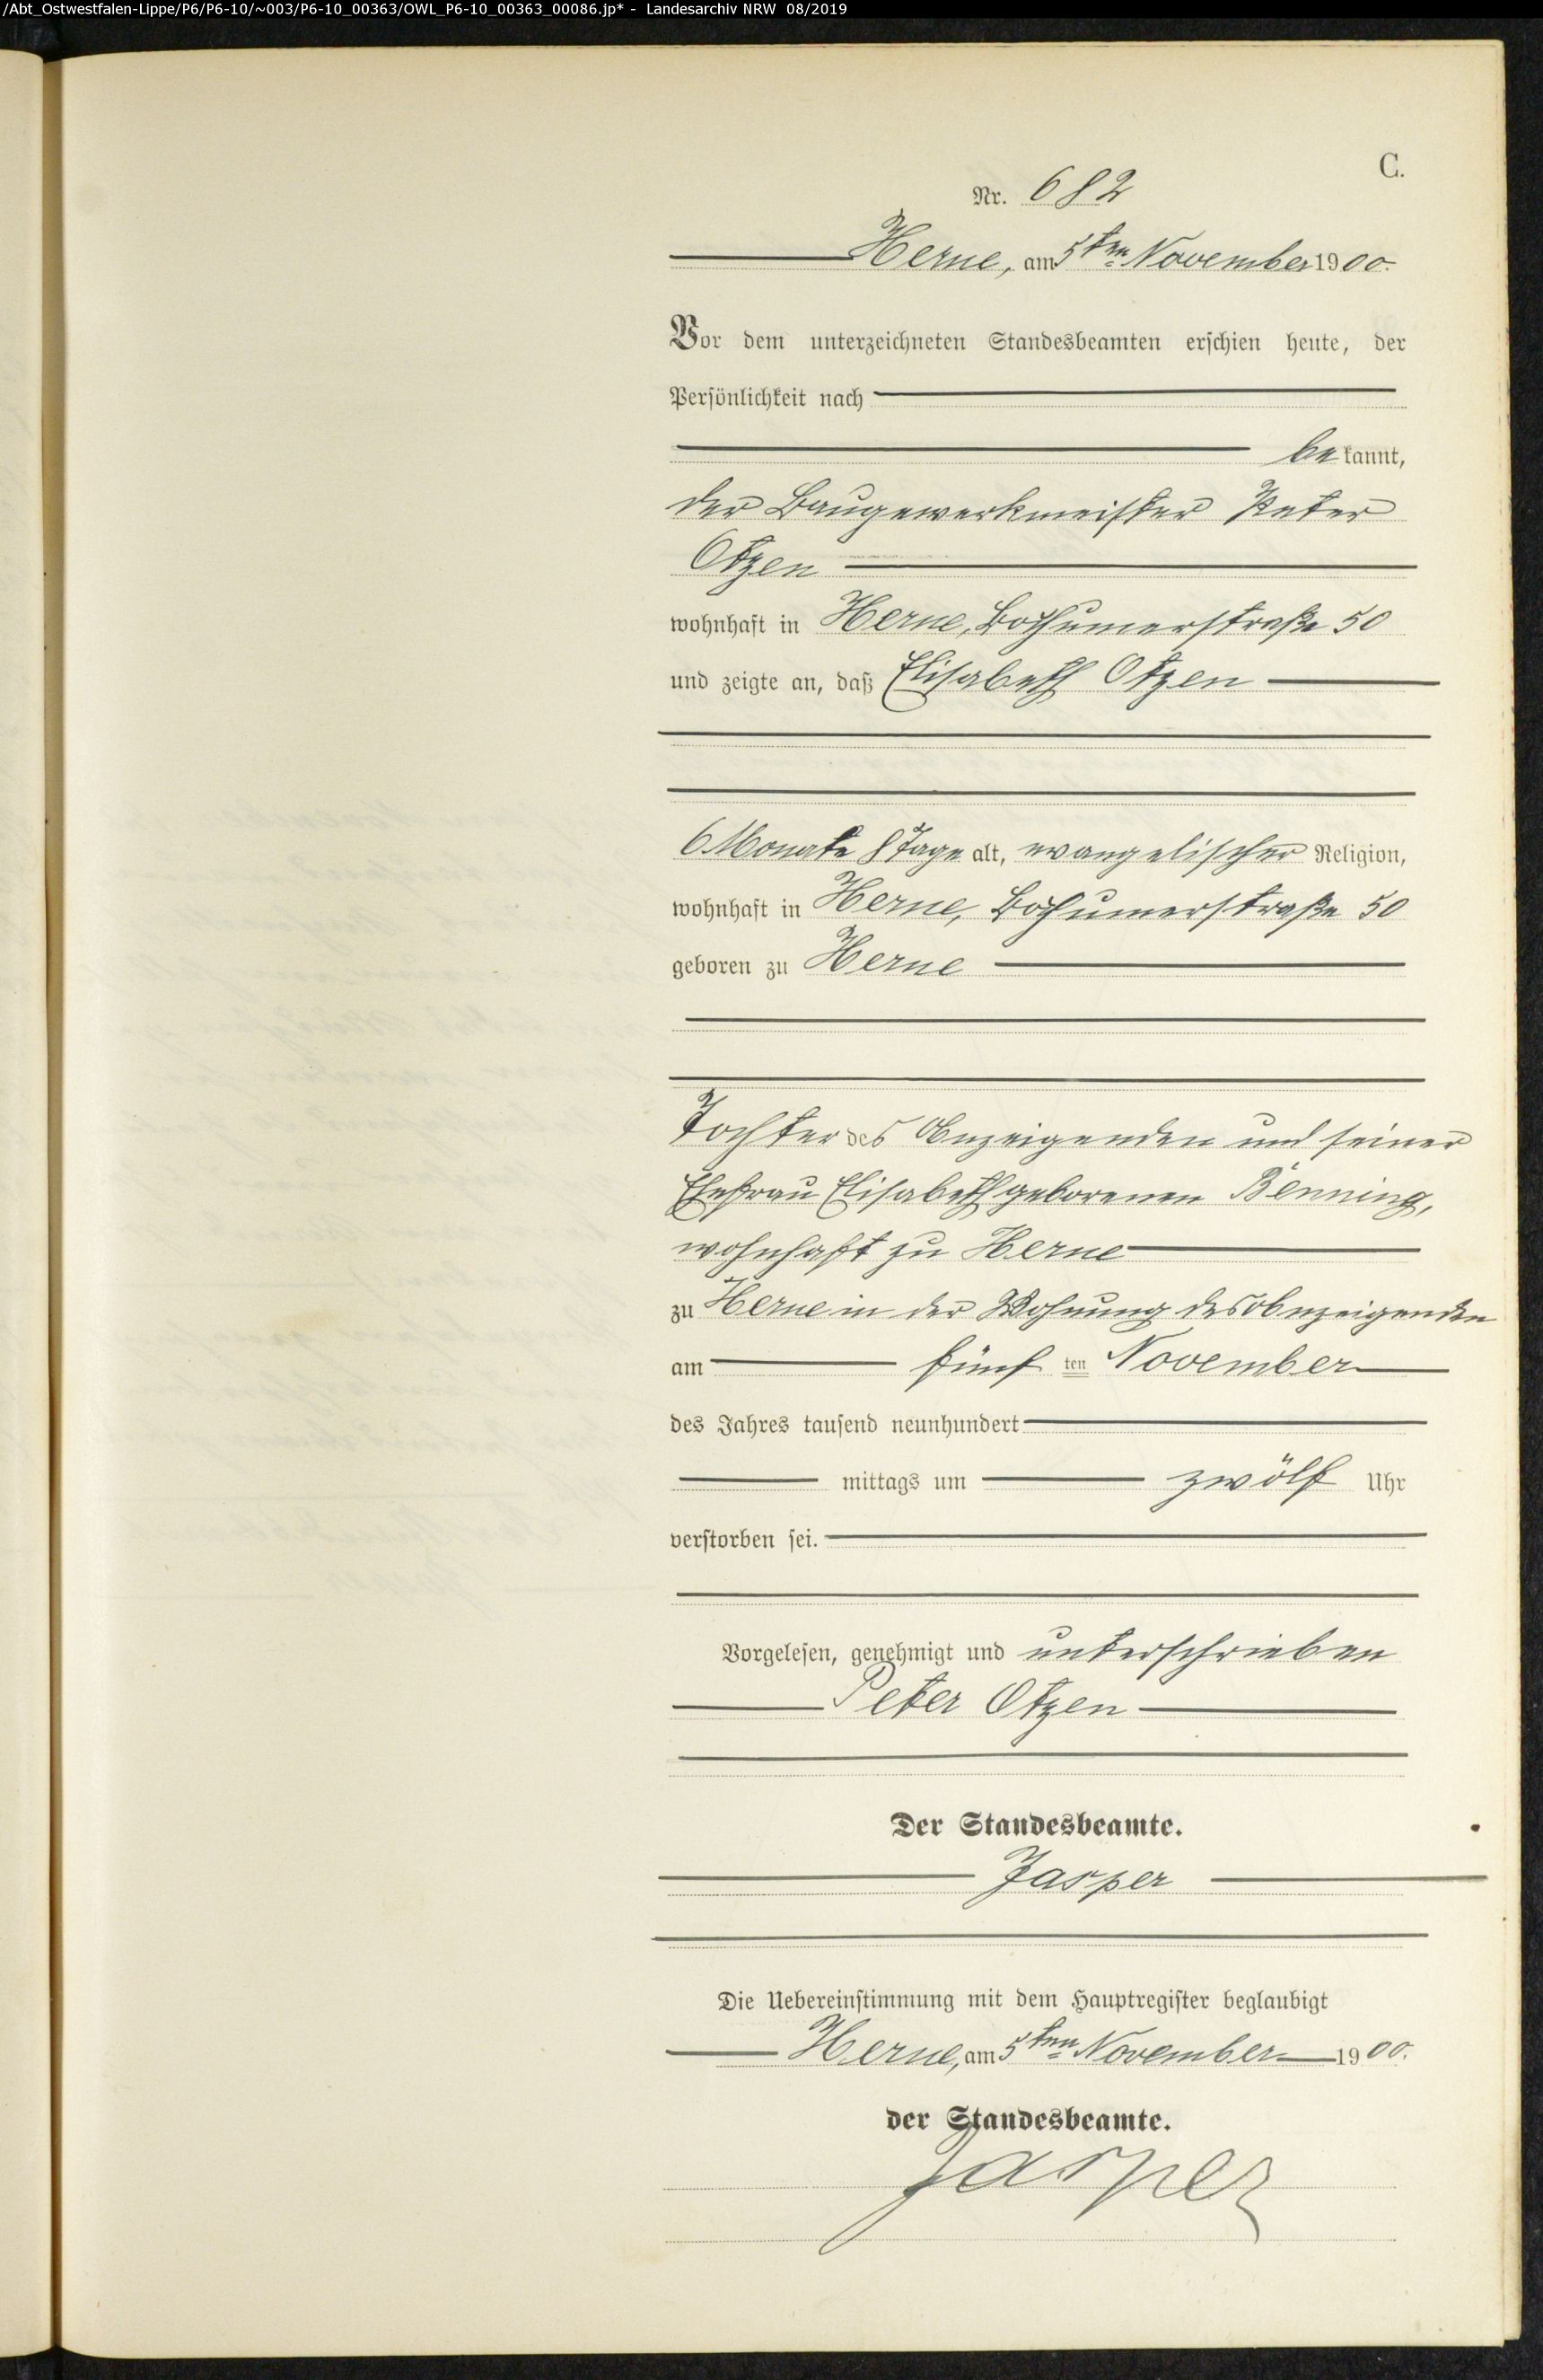 /Abt_Ostwestfalen-Lippe/P6/P6-10/~003/P6-10_00363/OWL_P6-10_00363_00086.jp* - Landesarchiv NRW 08/2019
C.
Nr. 682
Herne, am 5ten November 1900.
Vor dem unterzeichneten Standesbeamten erschien heute, der
Persönlichkeit nach
bekannt,
der Baugewerkmeister Peter
Otzen
wohnhaft in Herne, Bochumerstraße 50
und zeigte an, daß Elisabeth Otzen
6 Monate 8 Tage alt, evangelischer Religion,
wohnhaft in Herne, Bochumerstraße 50
geboren zu Herne
Tochter des Anzeigenden und seiner
Ehefrau Elisabeth geborenen Benning,
wohnhaft zu Herne
zu Herne in der Wohnung des Anzeigenden
am fünften November
des Jahres tausend neunhundert
mittags um zwölf Uhr
verstorben sei.
Vorgelesen, genehmigt und unterschrieben
Peter Otzen
Der Standesbeamte.
Jasper
Die Uebereinstimmung mit dem Hauptregister beglaubigt
Herne, am 5ten November 1900.
der Standesbeamte.
Jasper